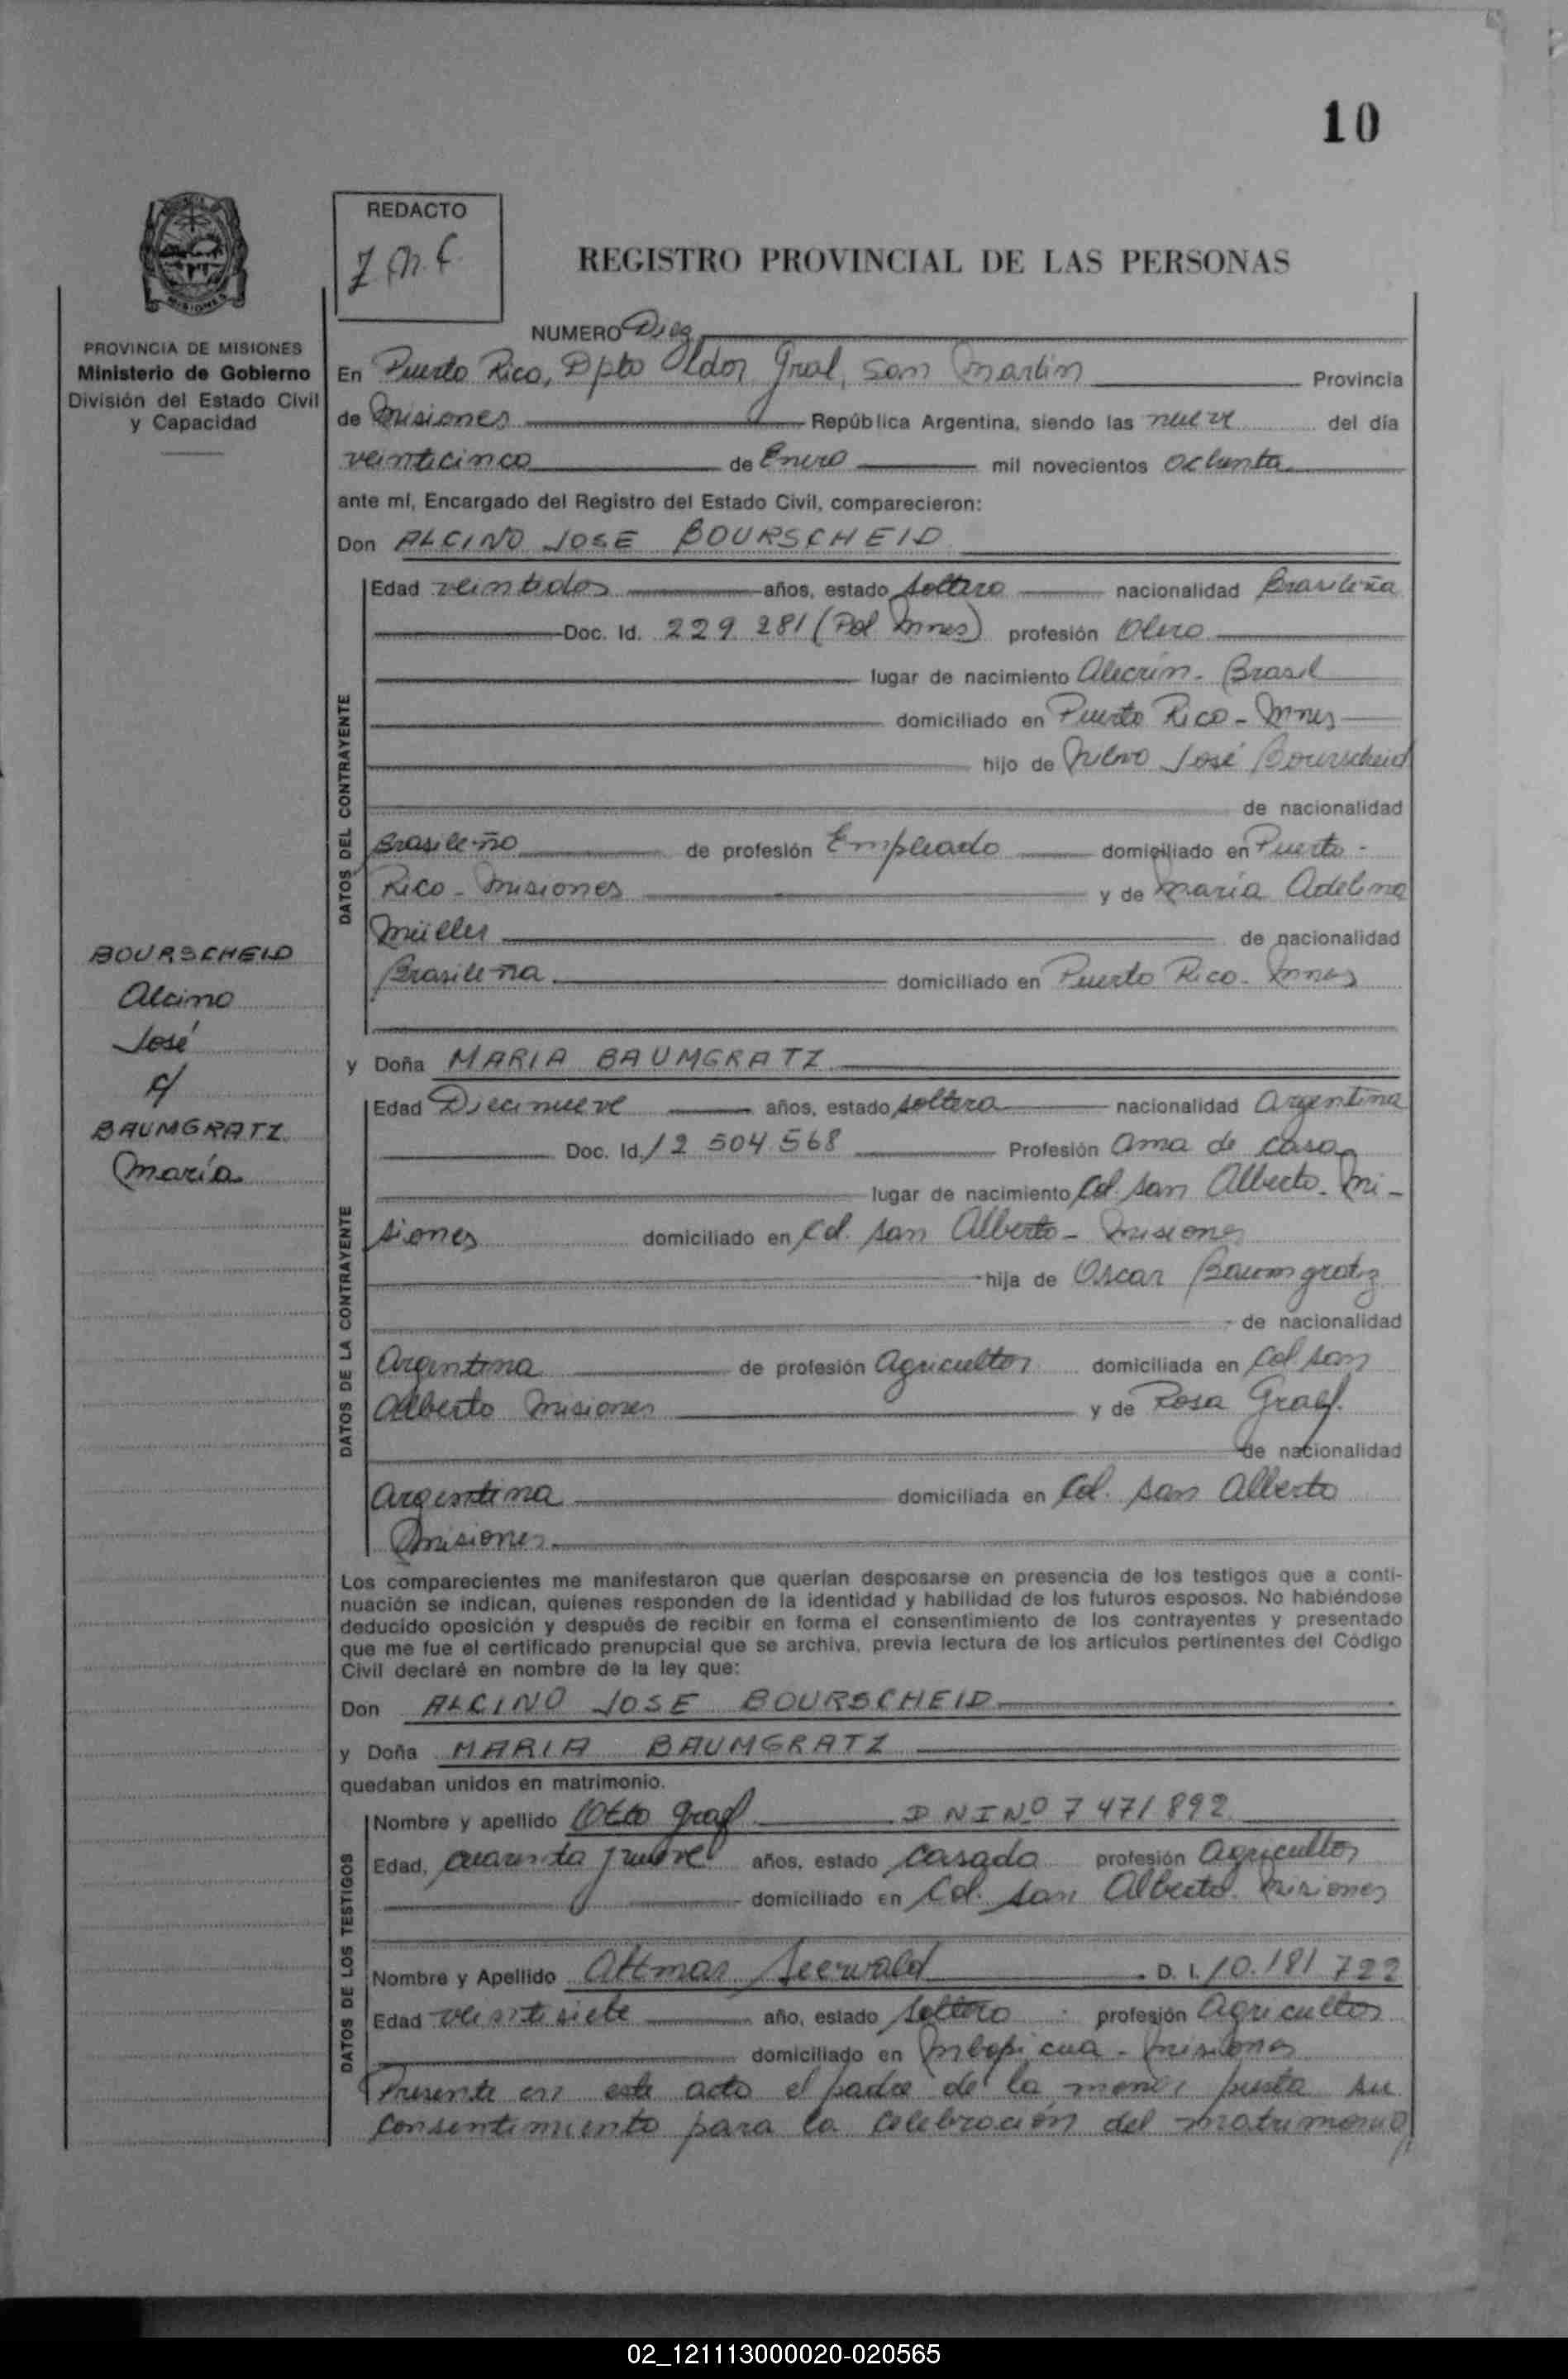 10
REDACTO
REGISTRO PROVINCIAL DE LAS PERSONAS
MISIONES
PROVINCIA DE MISIONES
Ministerio de Gobierno
División del Estado Civil
y Capacidad
NUMERO Diez
En Puerto Rico, Dpto Ldor Gral, San Martin Provincia
de Misiones República Argentina, siendo las nueve del día
veinticinco de Enero mil novecientos ochenta
ante mí, Encargado del Registro del Estado Civil, comparecieron:
Don ALCINO JOSE BOURSCHEID
Edad veintidos años, estado soltero nacionalidad Brasileña
Doc. Id. 229 281 (Pol Mnes) profesión Olero
lugar de nacimiento Alecrin - Brasil
domiciliado en Puerto Rico - Mnes
hijo de José Bourscheid
de nacionalidad
Brasileño de profesión Empleado domiciliado en Puerto -
Rico - Misiones y de María Adelina
Müller de nacionalidad
Brasileña domiciliado en Puerto Rico - Mnes
DATOS DEL CONTRAYENTE
BOURSCHEID
Alcino
José
c/
BAUMGRATZ
María
y Doña MARIA BAUMGRATZ
Edad Diecinueve años, estado soltera nacionalidad Argentina
Doc. Id. 12 504 568 Profesión ama de casa
lugar de nacimiento Col. San Alberto - Mi -
siones domiciliado en Col. San Alberto - Misiones
hija de Oscar Baumgratz
de nacionalidad
Argentina de profesión Agricultor domiciliada en Col San
Alberto Misiones y de Rosa Graef.
de nacionalidad
Argentina domiciliada en Col. San Alberto
Misiones
DATOS DE LA CONTRAYENTE
Los comparecientes me manifestaron que querían desposarse en presencia de los testigos que a conti-
nuación se indican, quienes responden de la identidad y habilidad de los futuros esposos. No habiéndose
deducido oposición y después de recibir en forma el consentimiento de los contrayentes y presentado
que me fue el certificado prenupcial que se archiva, previa lectura de los artículos pertinentes del Código
Civil declaré en nombre de la ley que:
Don ALCINO JOSE BOURSCHEID
y Doña MARIA BAUMGRATZ
quedaban unidos en matrimonio.
Nombre y apellido Otto Graef DNI Nº 7 471 892
Edad, cuarenta y nueve años, estado casado profesión Agricultor
domiciliado en Col. San Alberto Misiones
Nombre y Apellido Attmar Seewald D. I. 10.181 722
Edad veintisiete año, estado soltero profesión Agricultor
domiciliado en Mbopi cua - Misiones
DATOS DE LOS TESTIGOS
Presente en este acto el padre de la menor presta su
consentimiento para la celebración del matrimonio
02_121113000020-020565